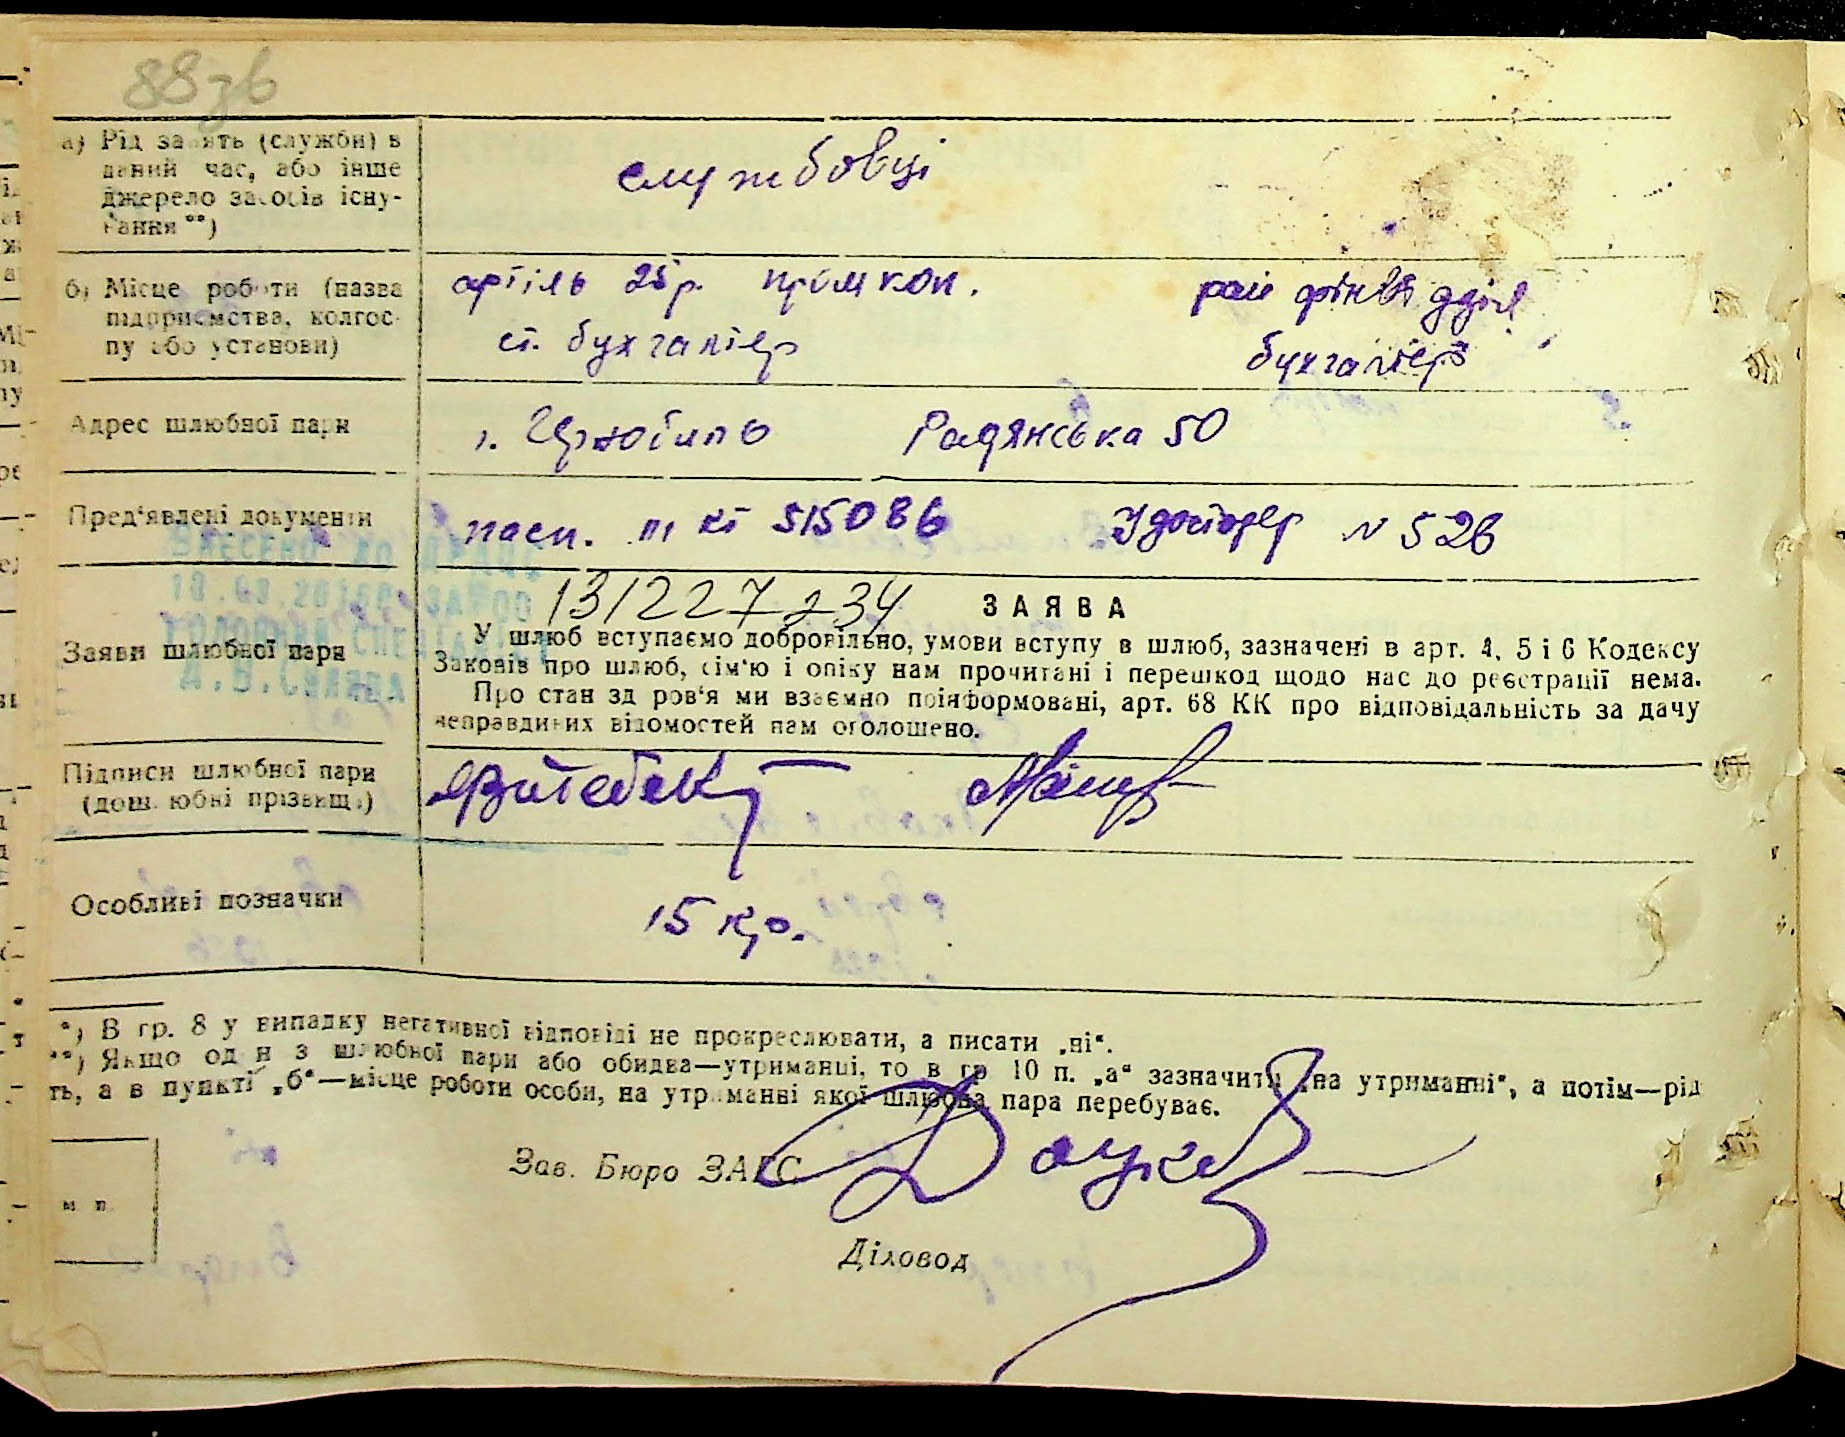 88зв
а) Рід занять (служби) в
даний час, або інше
джерело засобів існу-
вання **)
службовці
б) Місце роботи (назва
підприємства, колгос-
пу або установи)
артіль 25 р. промкоп.
ст. бухгалтер
рай фінвідділ
бухгалтер
Адрес шлюбної пари
Радянська 50
Пред'явлені документи
пасп. III КТ 515086
Удостовер N 526
ВНЕСЕНО ДО
131227234
Заяви шлюбної пари
ЗАЯВА
У шлюб вступаємо добровільно, умови вступу в шлюб, зазначені в арт. 4, 5 і 6 Кодексу
Законів про шлюб, сім'ю і опіку нам прочитані і перешкод щодо нас до реєстрації нема.
Про стан здоров'я ми взаємно поінформовані, арт. 68 КК про відповідальність за дачу
неправдивих відомостей нам оголошено.
Підписи шлюбної пари
(дошлюбні прізвища)
Особливі позначки
15 кр.
*) В гр. 8 у випадку негативної відповіді не прокреслювати, а писати „ні“.
**) Якщо один з шлюбної пари або обидва—утриманці, то в гр 10 п. „а“ зазначити „на утриманні“, а потім—рід
ть, а в пункті „б“—місце роботи особи, на утриманні якої шлюбна пара перебуває.
Зав. Бюро ЗАГС
м п.
Діловод